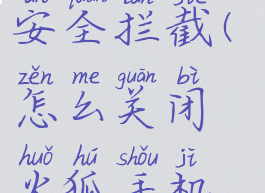 安全拦截(
zěn me guān bì
怎么关闭
huǒ hú shǒu jī
火狐手机